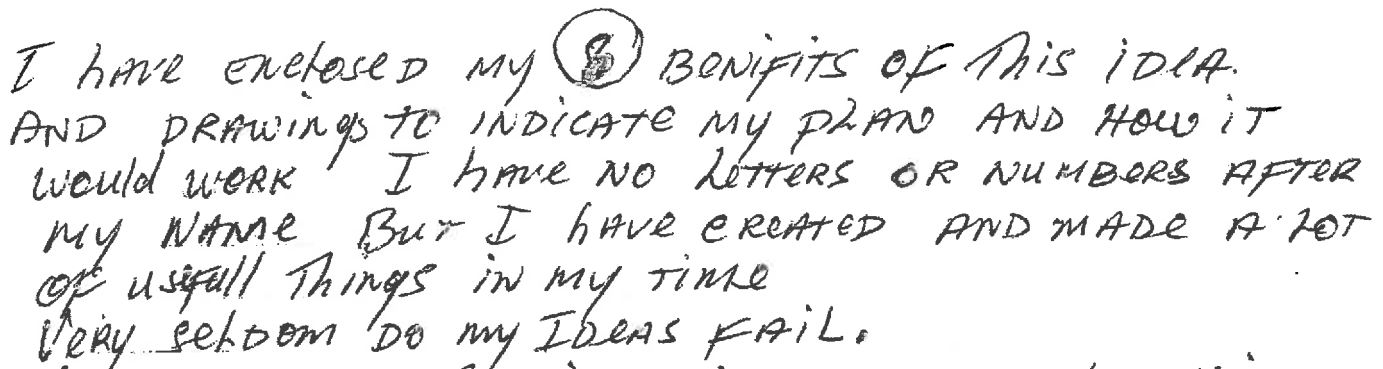 I have enclosed my 8 Benifits of This idea.
AND DRAWings TO INDICATE My pLAN AND HOW iT
would WORK I have NO LETTERS OR NUMBERS AFTER
my NAMe But I have CREATED AND MADE A LOT
OF usefull Things in my Time
Very seldom Do my IDEAS FAIL.